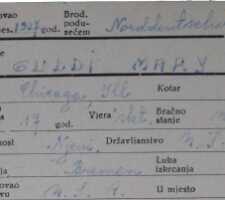 ovao Brod.
jes. 1927 god. poduzećem Norddeutscher
GULDI MARY
Chicago, Ill Kotar
17 god. Vjera rkt. Bračno stanje
nost Njem. Državljanstvo
ja Bremen Luka izkrcanja
ovao
vu U. S. A. U mjesto